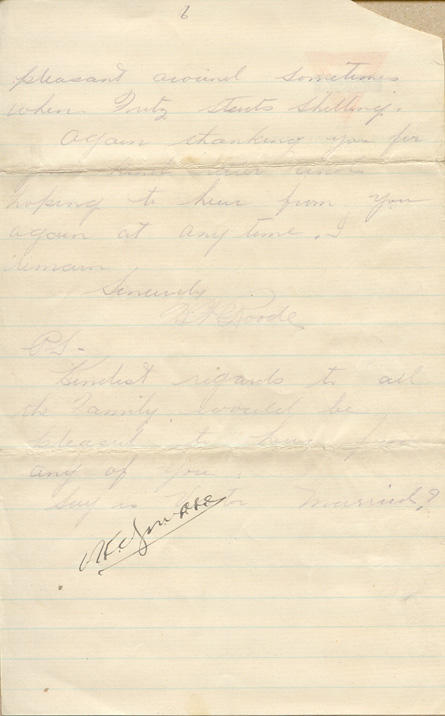 6
pleasant around sometimes
when Fritz starts shelling.
Again thanking you for
kind
hoping to hear from you
again at any time. I
remain
Sincerely
P.S.-
Kindest regards to all
the Family would be
pleased to hear from
any of you.
Say is Married?